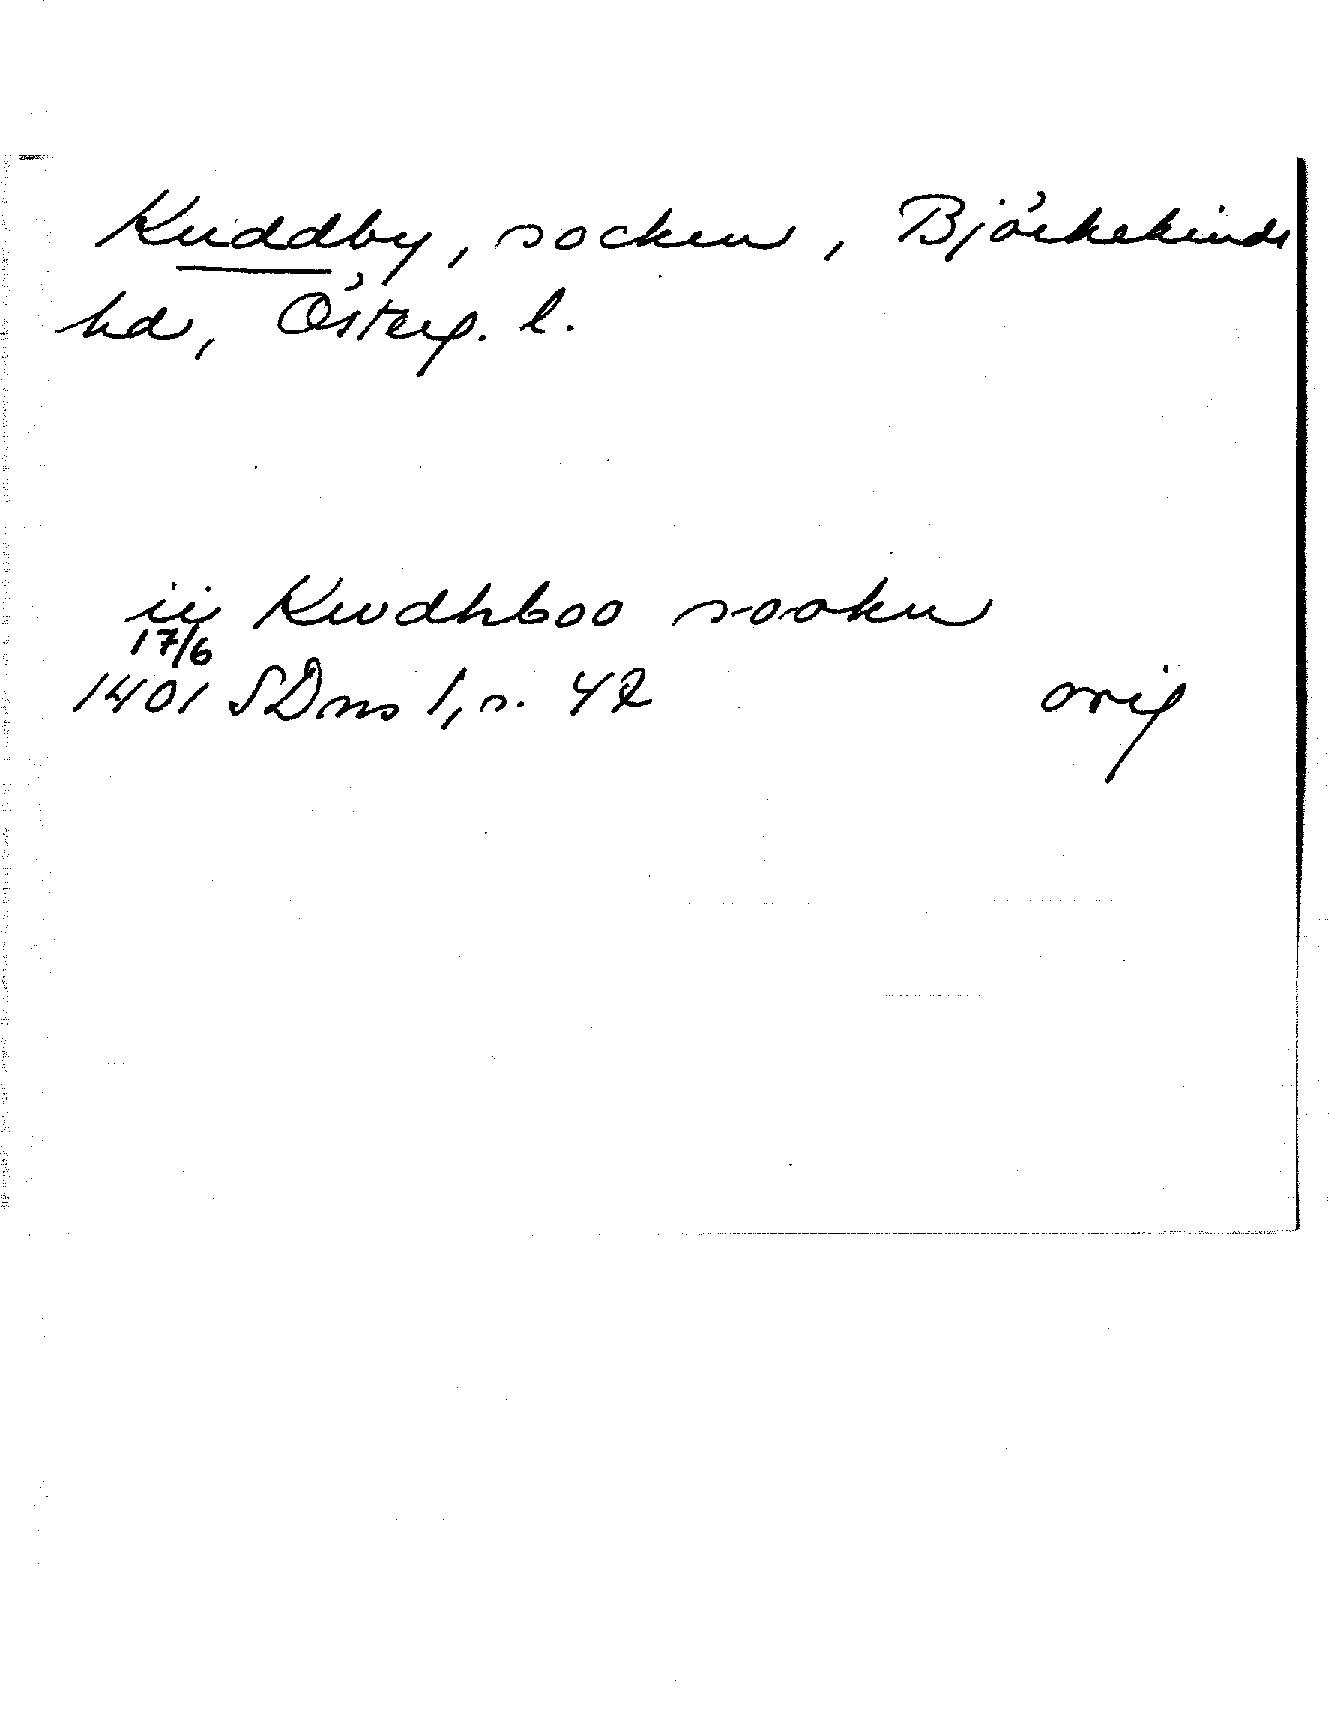 Kuddby, socken, Björkekinds
hd, Österg. l.
ij Kwdhboo sookn
17/6
1401 SDns 1, s. 42 orig